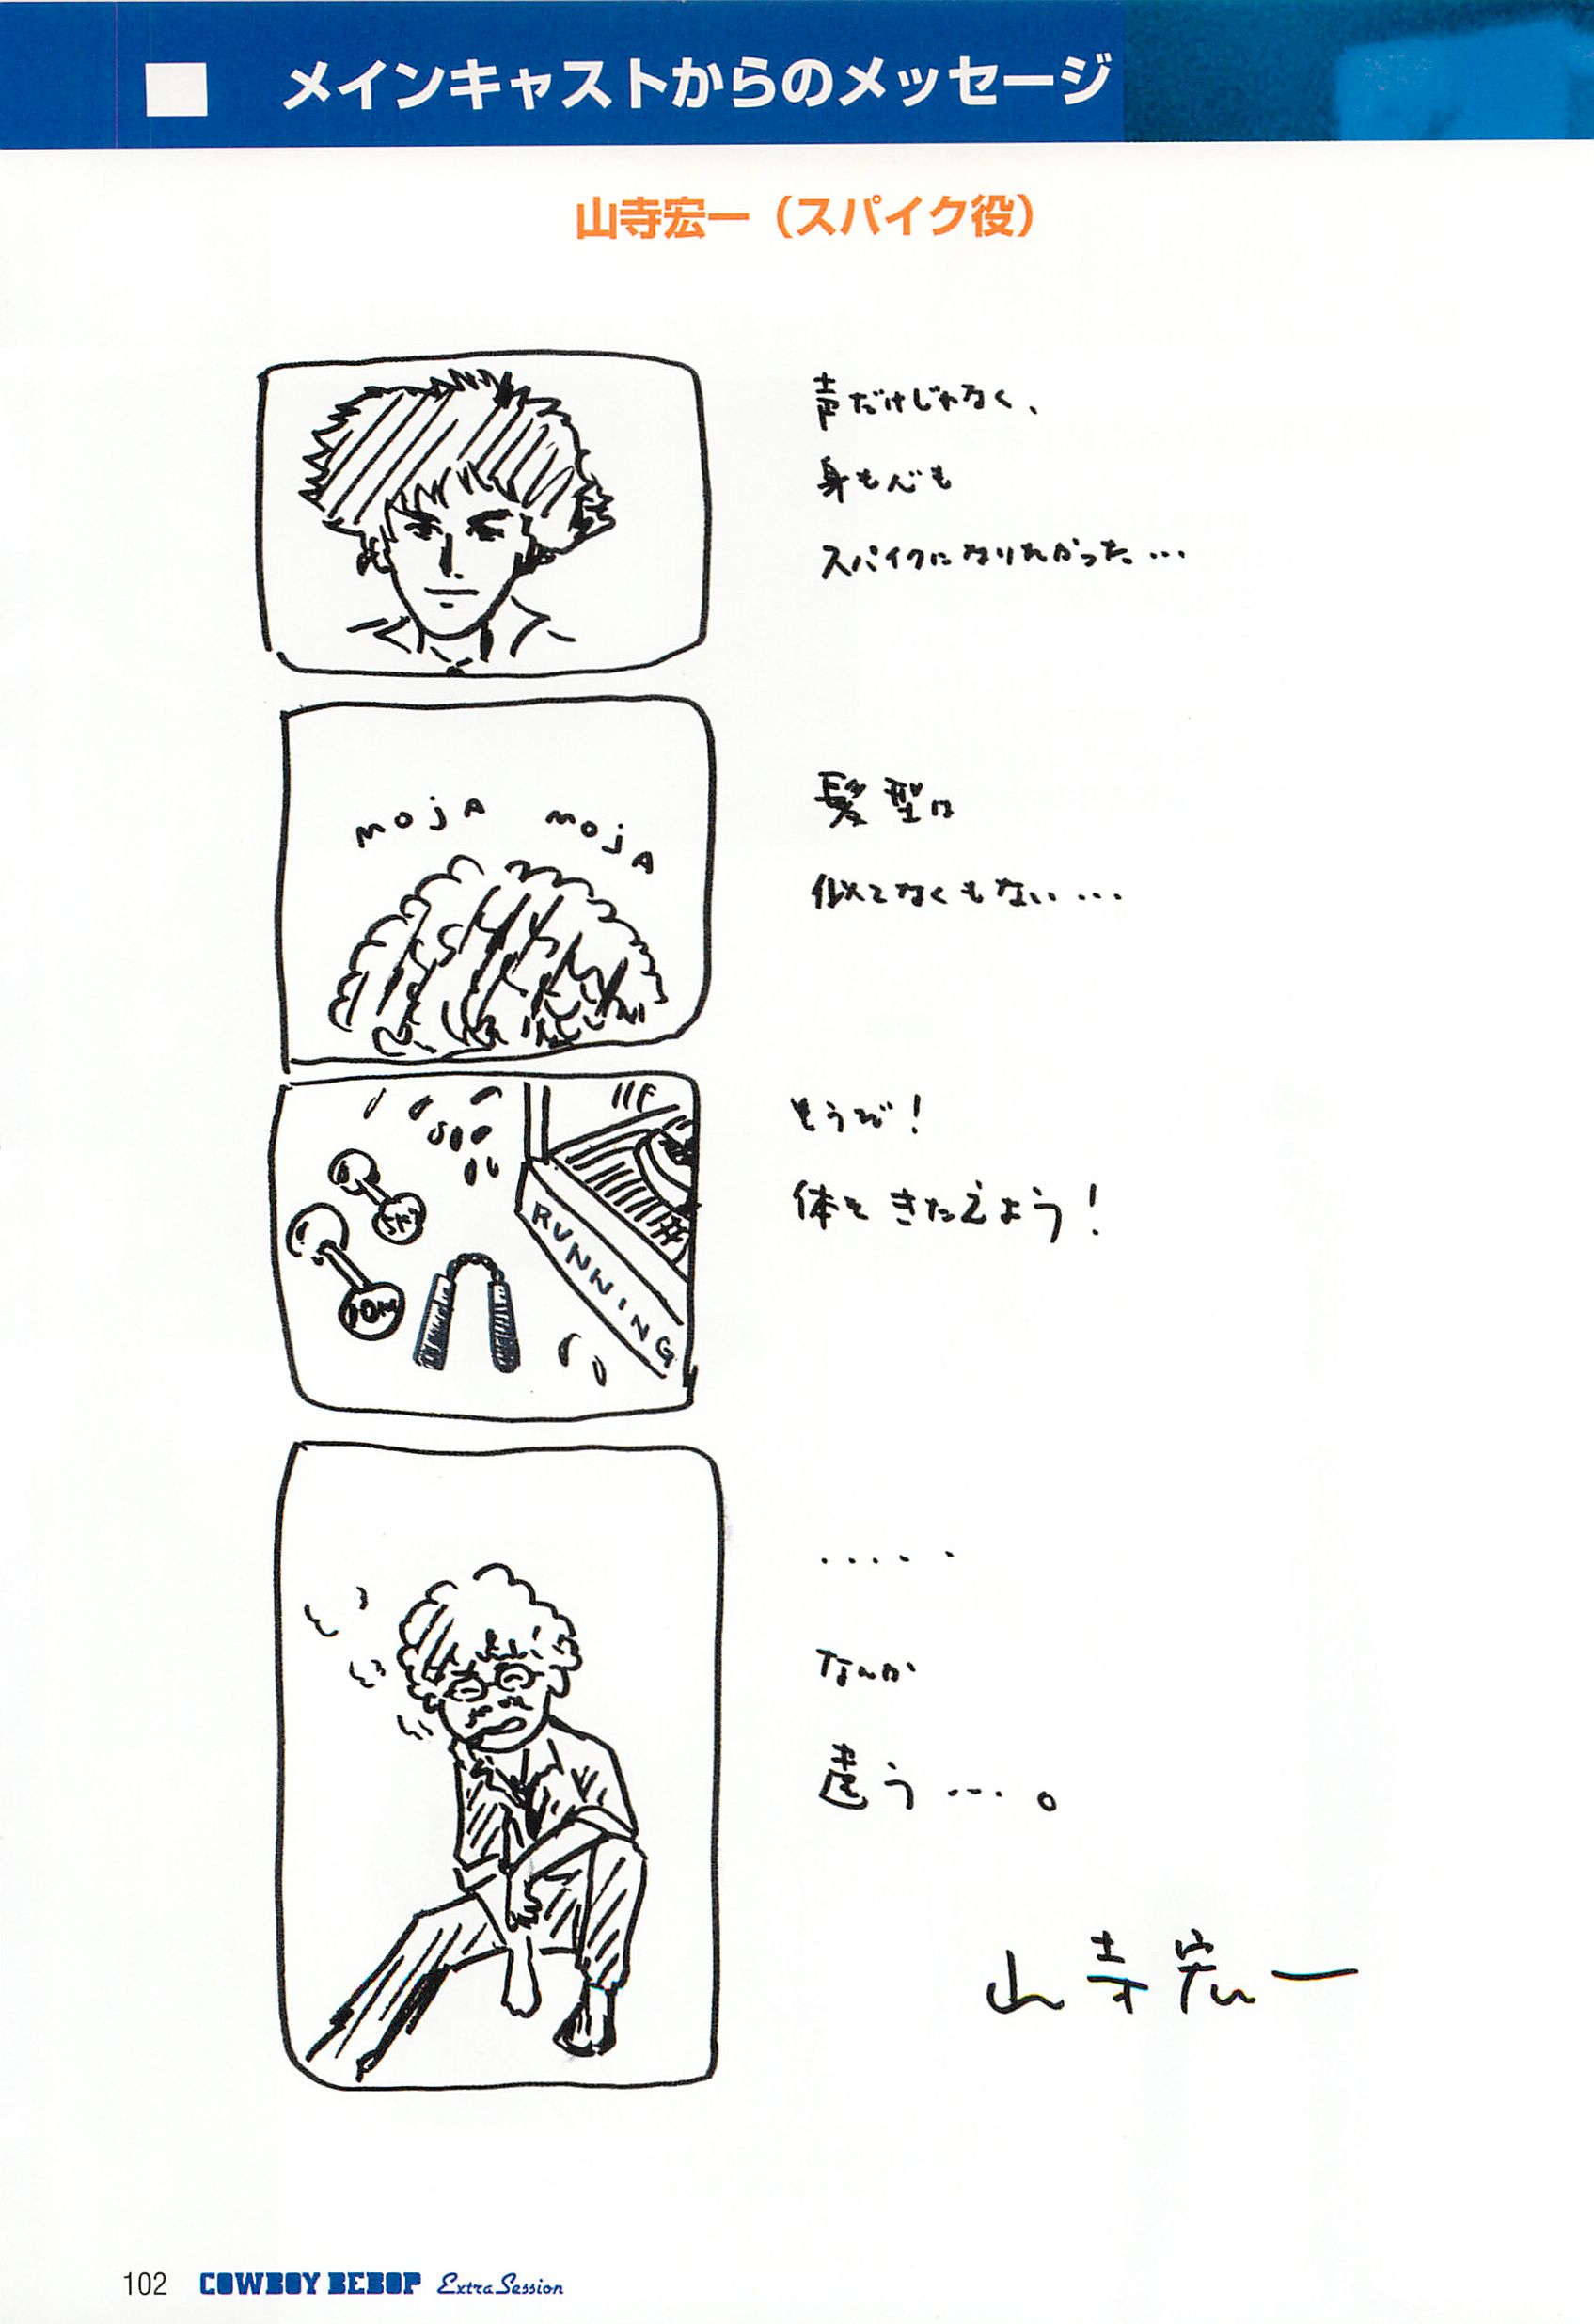 メインキャストからのメッセージ
山寺宏一（スパイク役）
声だけじゃなく、
身も心も
スパイクになりたかった…
moJA moJA
髪型は
似てなくもない…
そうだ！
体を きたえよう！
5K
10K
RUNNING
.....
なんか
違う…。
山寺宏一
102 COWBOY BEBOP Extra Session